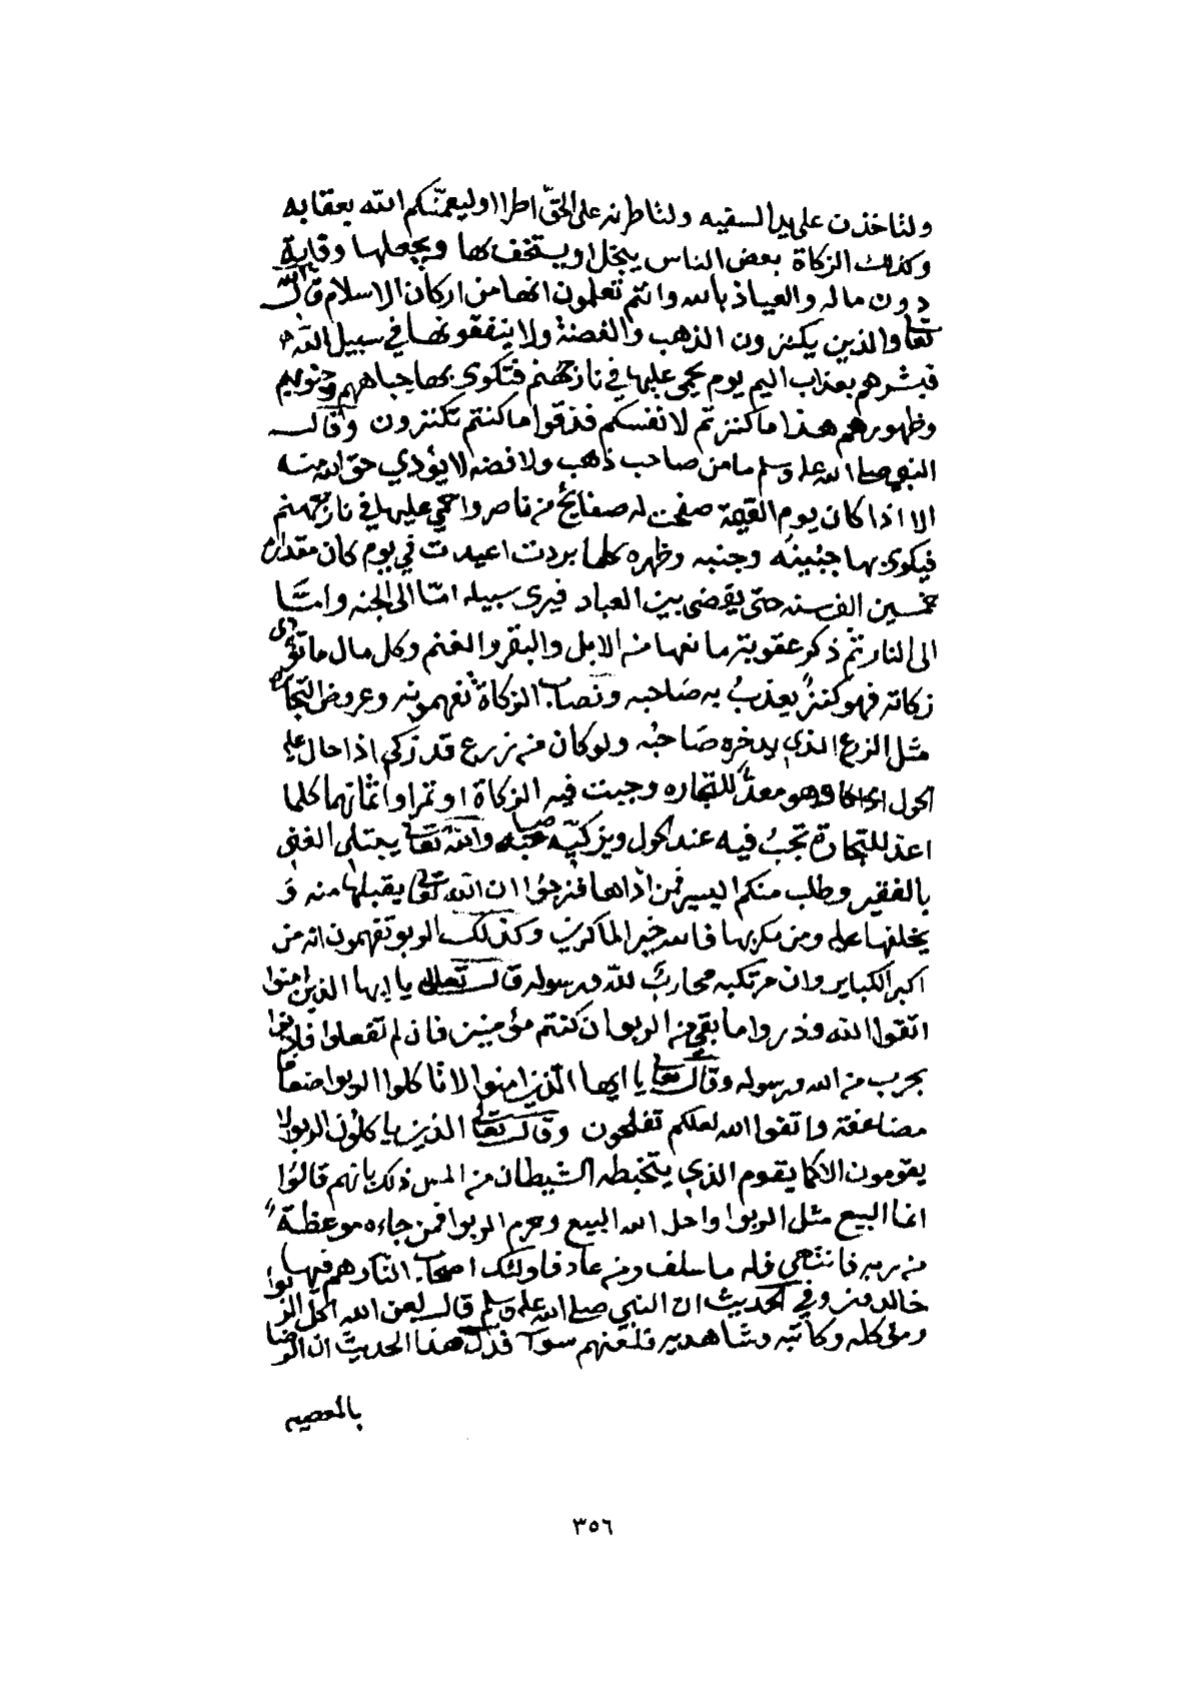 ولتاخذن على يد السفيه ولتاطرنه على الحقّ اطرا او ليعمّنّكم الله بعقابه
وكذلك الزكاة بعض الناس يبخل او يستخف بها ويجعلها وقاية
دون ماله والعياذ بالله وانتم تعلمون انها من اركان الاسلام قال الله
تعا والذين يكنزون الذهب والفضة ولا ينفقونها في سبيل الله
فبشرهم بعذاب اليم يوم يحمى عليها في نار جهنم فتكوى بها جباههم وجنوبهم
وظهورهم هذا ما كنزتم لانفسكم فذقوا ما كنتم تكنزون وقال
النبي صلى الله عليه وسلم ما من صاحب ذهب ولا فضه لا يؤدي حق الله منه
الا اذا كان يوم القيمة صفحت له صفايح من نار واحمي عليها في نار جهنم
فيكوى بها جنبينه وجنبه وظهره كلما بردت اعيدت في يوم كان مقداره
خمسين الف سنه حتى يقضى بين العباد فيرى سبيله امّا الى الجنه وامّا
الى النار ثم ذكر عقوبة مانعها من الابل والبقر والغنم وكل مال ما تؤدى
زكاته فهو كنزٌ يعذبُ به صاحبه ونصاب الزكاة تفهمونه وعروض التجاره
مثل الزرع الذي يدخره صاحبُه ولو كان من زرع قد زكي اذا حال عليه
الحول وهو معدٌّ للتجاره وجبت فيه الزكاة او تمرا واثمانهما كلما
اعد للتجارة تجبُ فيه عند الحول ويزكيّه صاحبه والله تعا يبتلى الغنى
بالفقير وطلب منكم اليسير فمن اداها فنرجوا ان الله تعا يقبلها منه و
يخلفها عليه ومن مكر بها فالله خير الماكرين وكذلك الربو تفهمون انه من
اكبر الكباير وان مرتكبه محاربٌ لله ورسوله قال تعالى يا ايها الذين امنوا
اتقوا الله وذروا ما بقي من الربو ان كنتم مؤمنين فان لم تفعلوا فاذنوا
بحرب من الله ورسوله وقال تعا يا ايها الذين امنوا لا تاكلوا الربوا اضعافا
مضاعفة واتقوا الله لعلكم تفلحون وقال تعا الذين ياكلون الربوا لا
يقومون الا كما يقوم الذي يتخبطه الشيطان من المس ذلك بانهم قالوا
انما البيع مثل الربوا واحل الله البيع وحرم الربوا فمن جاءه موعظةٌ
من ربه فانتهى فله ما سلف ومن عاد فاولئك اصحاب النار هم فيها
خالدون وفي الحديث ان النبي صلى الله عليه وسلم قال لعن الله اكل الربوا
ومؤكله وكاتبه وشاهديه فلعنهم سوآ فدل هذا الحديث ان الرضا
بالمعصيه
٣٥٦